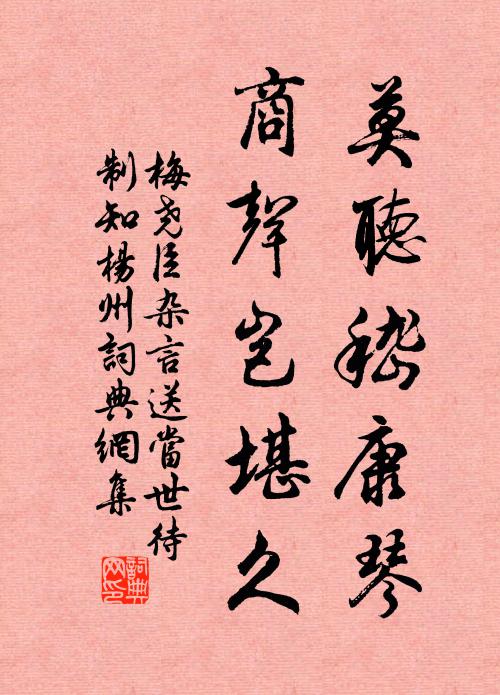 莫聽嵇康琴
商聲豈堪久
梅堯臣杂言送當世待
制知楊州詞典網集
詞典網印